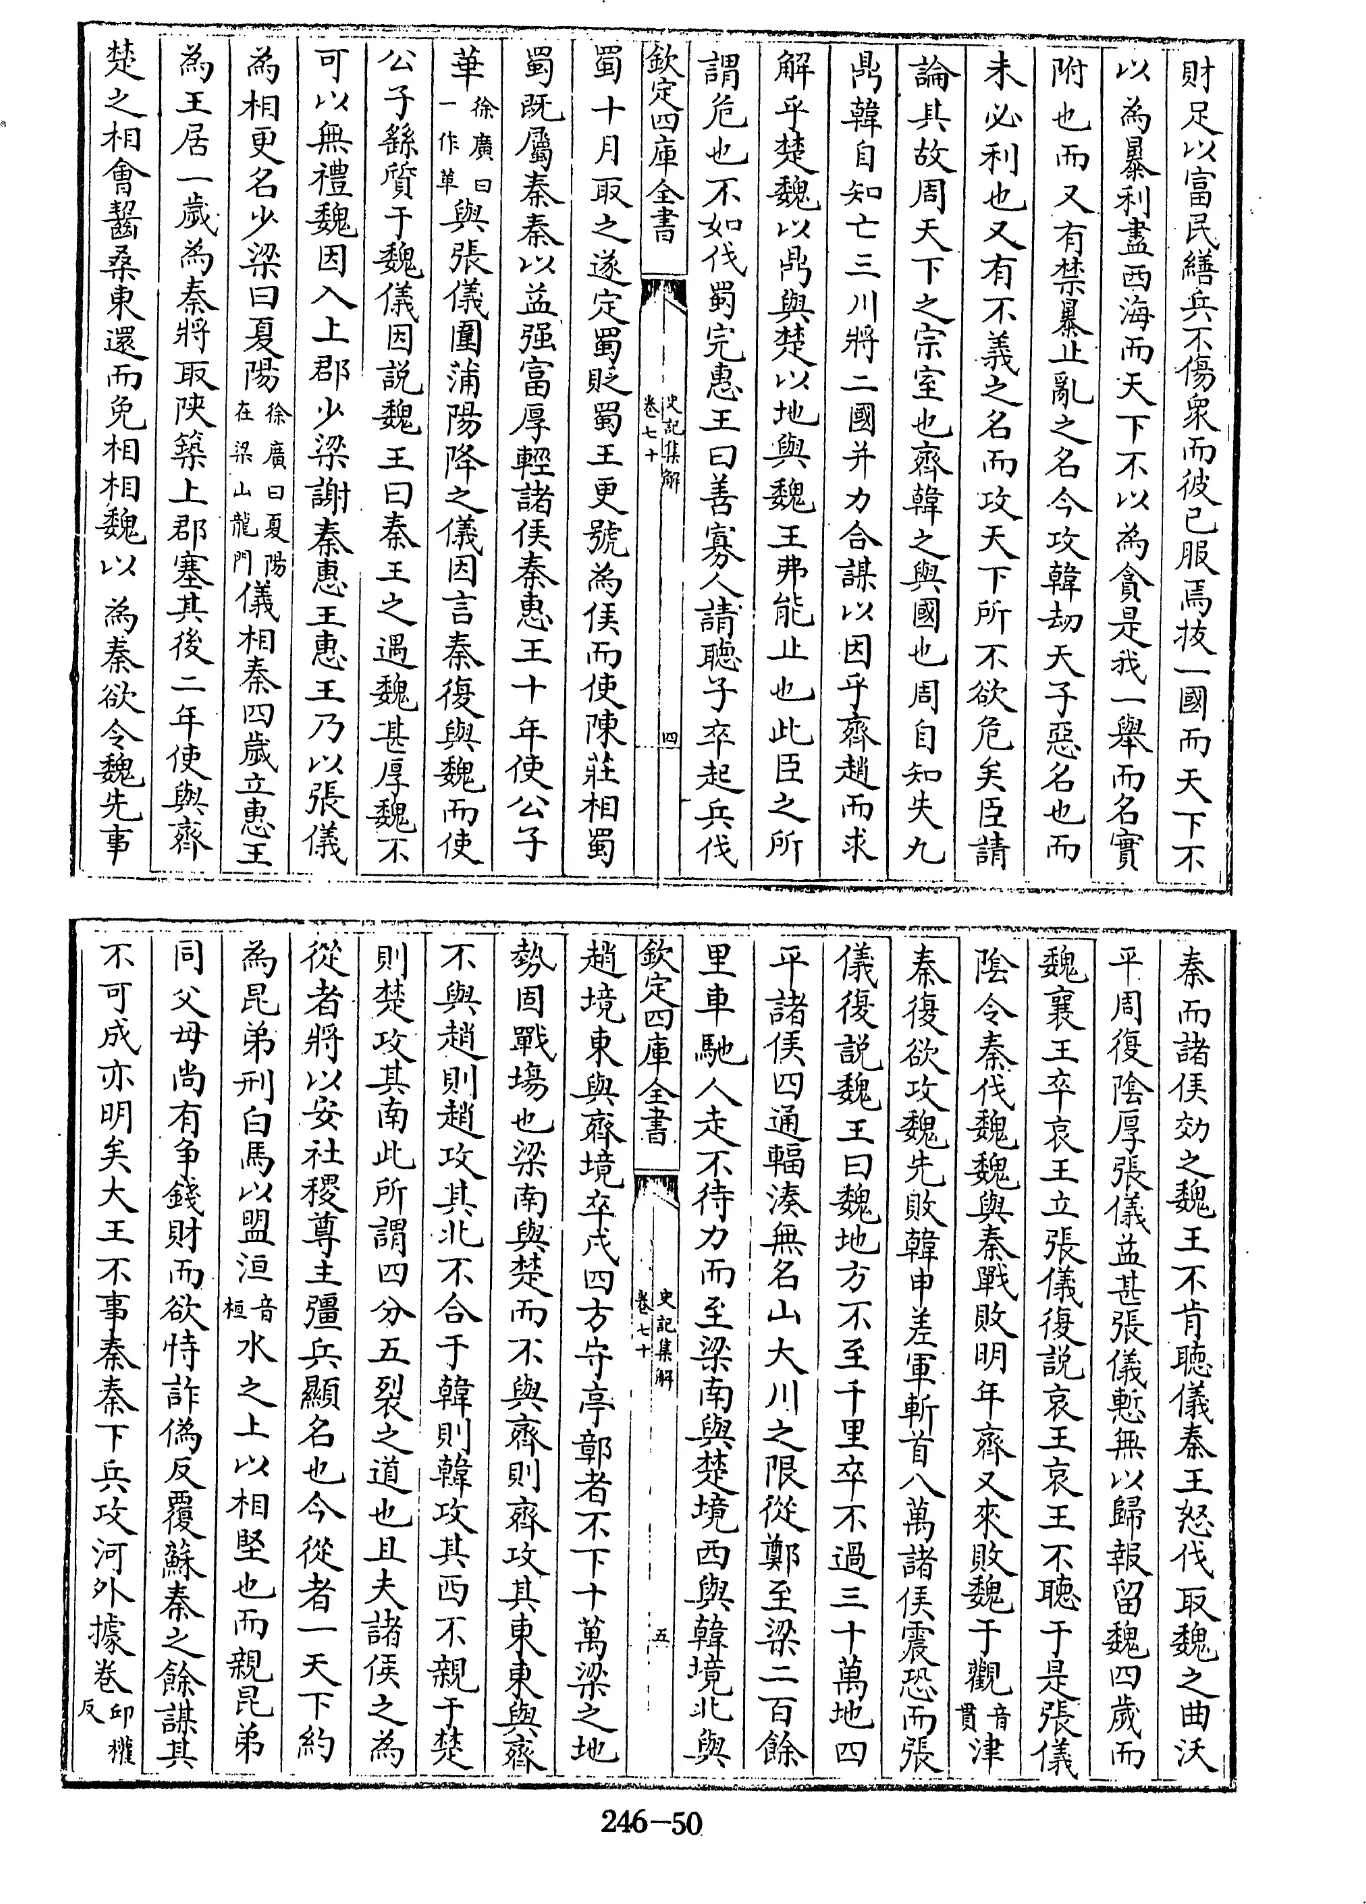 財足以富民繕兵不傷衆而彼已服焉拔一國而天下不
以為暴利盡西海而天下不以為貪是我一舉而名實
附也而又有禁暴止亂之名今攻韓劫天子惡名也而
未必利也又有不義之名而攻天下所不欲危矣臣請
論其故周天下之宗室也齊韓之與國也周自知失九
鼎韓自知亡三川將二國并力合謀以因乎齊趙而求
解乎楚魏以鼎與楚以地與魏王弗能止也此臣之所
謂危也不如伐蜀完惠王曰善寡人請聽子卒起兵伐
欽定四庫全書
史記集解
卷七十
四
蜀十月取之遂定蜀貶蜀王更號為侯而使陳莊相蜀
蜀既屬秦秦以益强富厚輕諸侯秦惠王十年使公子
華徐廣曰一作革與張儀圍蒲陽降之儀因言秦復與魏而使
公子繇質于魏儀因説魏王曰秦王之遇魏甚厚魏不
可以無禮魏因入上郡少梁謝秦惠王惠王乃以張儀
為相更名少梁曰夏陽徐廣曰夏陽在梁山龍門儀相秦四歲立惠王
為王居一歲為秦將取陜築上郡塞其後二年使與齊
楚之相會齧桑東還而免相相魏以為秦欲令魏先事
秦而諸侯効之魏王不肯聴儀秦王怒伐取魏之曲沃
平周復陰厚張儀益甚張儀慙無以歸報留魏四歲而
魏襄王卒哀王立張儀復説哀王哀王不聴于是張儀
陰令秦伐魏魏與秦戰敗明年齊又來敗魏于觀音貫津
秦復欲攻魏先敗韓申差軍斬首八萬諸侯震恐而張
儀復説魏王曰魏地方不至千里卒不過三十萬地四
平諸侯四通輻湊無名山大川之限從鄭至梁二百餘
里車馳人走不待力而至梁南與楚境西與韓境北與
欽定四庫全書
史記集解
卷七十
五
趙境東與齊境卒戍四方守亭鄣者不下十萬梁之地
勢固戰場也梁南與楚而不與齊則齊攻其東東與齊
不與趙則趙攻其北不合于韓則韓攻其西不親于楚
則楚攻其南此所謂四分五裂之道也且夫諸侯之為
從者將以安社稷尊主彊兵顯名也今從者一天下約
為昆弟刑白馬以盟洹音桓水之上以相堅也而親昆弟
同父母尚有争錢財而欲恃詐偽反覆蘇秦之餘謀其
不可成亦明矣大王不事秦秦下兵攻河外據卷卬權反
246-50